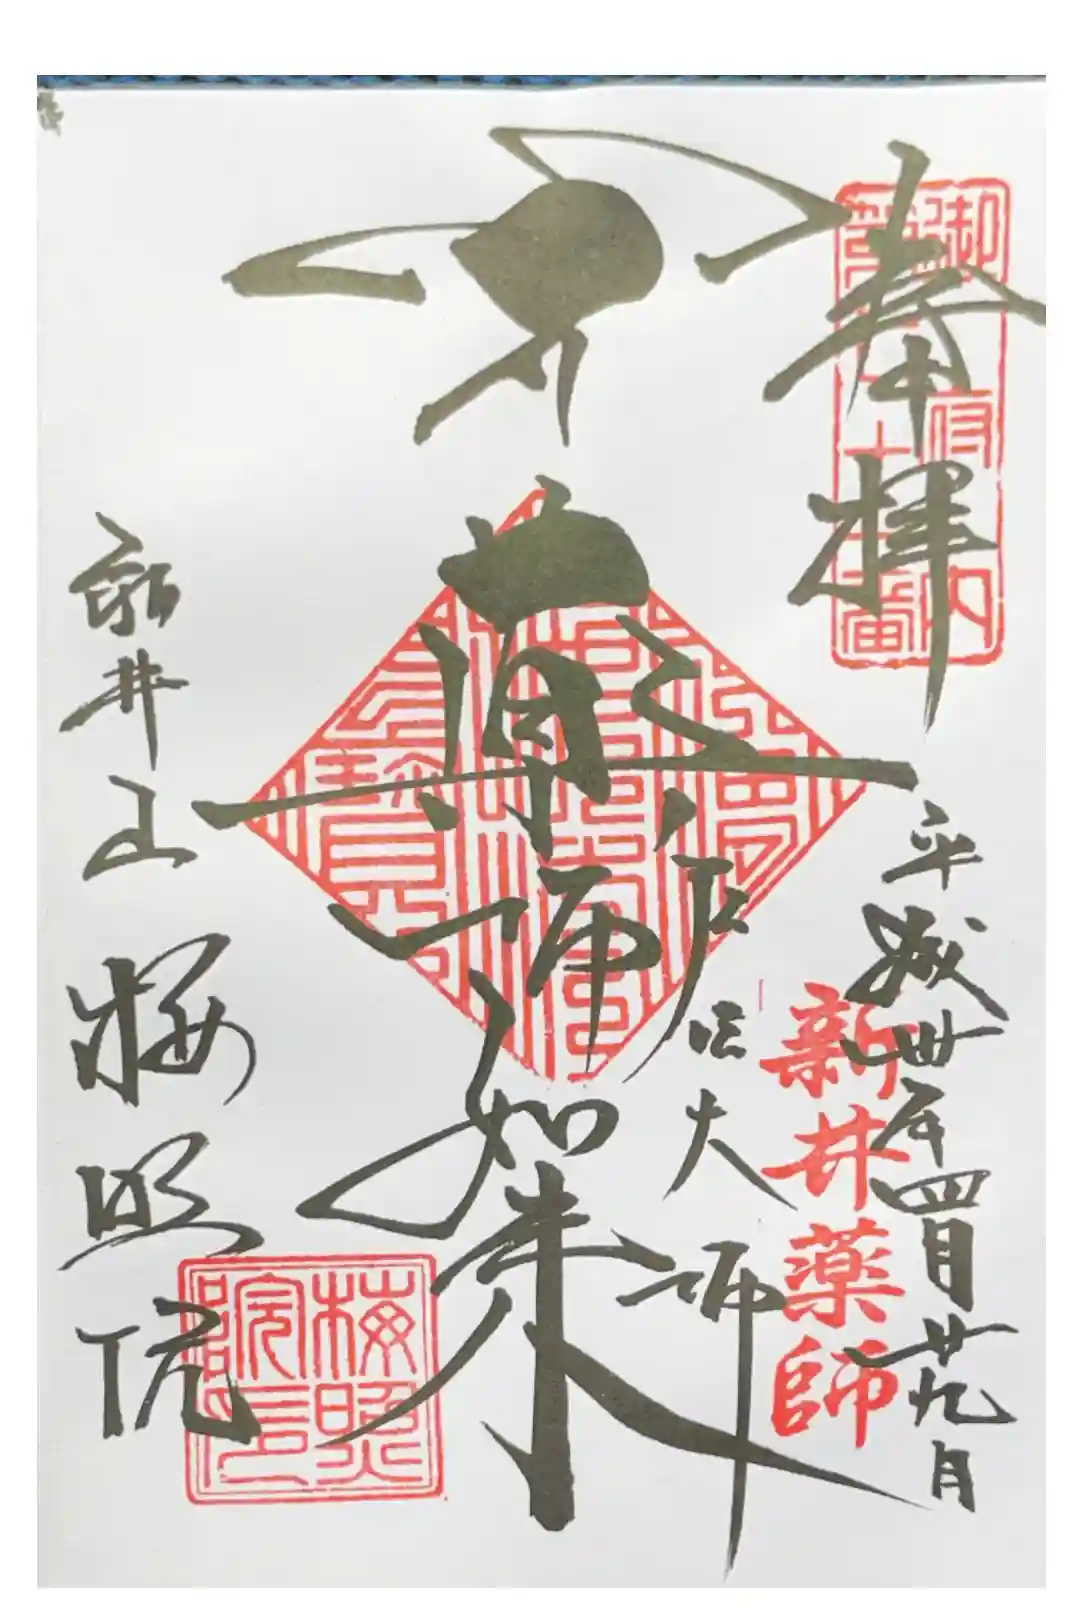 奉拝
御府内
第七十一番
平成卅年四月廿九日
新井薬師
弘法大師
薬師如来
新井山
梅照院
梅照院印